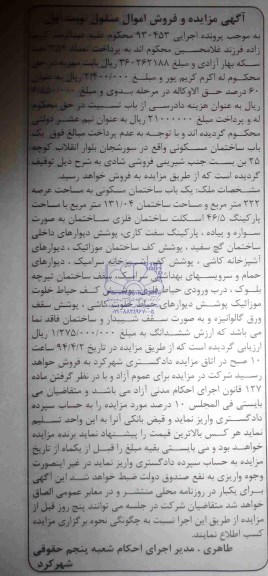 آگهی مزایده و فروش اموال منقول نوبت اول
به موجب پرونده اجرایی ۹۳۰۴۵۳ محکوم علیه
زاده فرزند غلامحسین محکوم اند به پرداخت تعداد
سکه بهار آزادی و مبلغ ۳۶۰۲۶۲۱۸۸ ریال بابت مهریه در حق
محکوم له اکرم کریم پور و مبلغ ریال به عنوان
۶۰ درصد حق الوکاله در مرحله بدوی و مبلغ
ریال به عنوان هزینه دادرسی از باب تسبیت در حق محکوم
له و پرداخت مبلغ ۲۱۰۰۰۰۰۰ ریال به عنوان نیم عشر دولتی
محکوم گردیده اند و با توجه به عدم پرداخت مبالغ فوق یک
باب ساختمان مسکونی واقع در سورشجان بلوار انقلاب کوچه
۲۵ بن بست جنب شیرینی فروشی شادی به شرح ذیل توقیف
گردیده است که از طریق مزایده به فروش خواهد رسید.
مشخصات ملک: یک باب ساختمان مسکونی به مساحت عرصه
۲۲۲ متر مربع و مساحت ساختمان ۱۳۱/۰۴ متر مربع با مساحت
پارکینگ ۴۶/۵ اسکلت ساختمان فلزی ساختمان به صورت
سواره و پیاده ، پارکینگ سفت کاری، پوشش دیوارهای داخلی
ساختمان گچ سفید ، پوشش کف ساختمان موزائیک ، دیوارهای
آشپزخانه کاشی ، پوشش کف آشپزخانه سرامیک ، دیوارهای
حمام و سرویسهای بهداشتی سرامیک سقف ساختمان تیرچه
بلوک ، درب ورودی حیاط فلزی، پوشش کف حیاط خلوت
موزائیک پوشش دیوارهای حیاط خلوت کاشی ، پوشش سقف
ورق گالوانیزه و به صورت سقف شیبدار و ساختمان فاقد نما
می باشد که ارزش ششدانگ به مبلغ ۱/۲۷۵۰۰۰۰۰۰ ریال
ارزیابی گردیده است که از طریق مزایده در تاریخ ۹۴/۴/۲ ساعت
۱۰ صبح در اتاق مزایده دادگستری شهرکرد به فروش خواهد
رسید شرکت در مزایده برای عموم آزاد و با در نظر گرفتن ماده
۱۲۷ قانون اجرای احکام مدنی آزاد می باشد و متقاضیان می
بایستی فی المجلس ۱۰ درصد مورد مزایده را به حساب سپرده
دادگستری واریز نماید و قبض بانکی آنرا به این واحد تسلیم
نماید هر کس بالاترین قیمت را پیشنهاد نماید برنده مزایده
خواهد بود و می بایستی بقیه مبلغ را قبل از یکماه از تاریخ
مزایده به حساب سپرده دادگستری واریز نماید در غیر اینصورت
وجوه واریزی به نفع صندوق دولت ضبط خواهد شد این آگهی
برای یکبار در روزنامه محلی منتشر و در معابر عمومی الصاق
خواهد شد متقاضیان شرکت در جلسه می توانند پنج روز قبل از
مزایده از طریق این اجرا نسبت به چگونگی نحوه برگزاری مزایده
کسب اطلاع نمایند.
طاهری . مدیر اجرای احکام شعبه پنجم حقوقی
شهرکرد